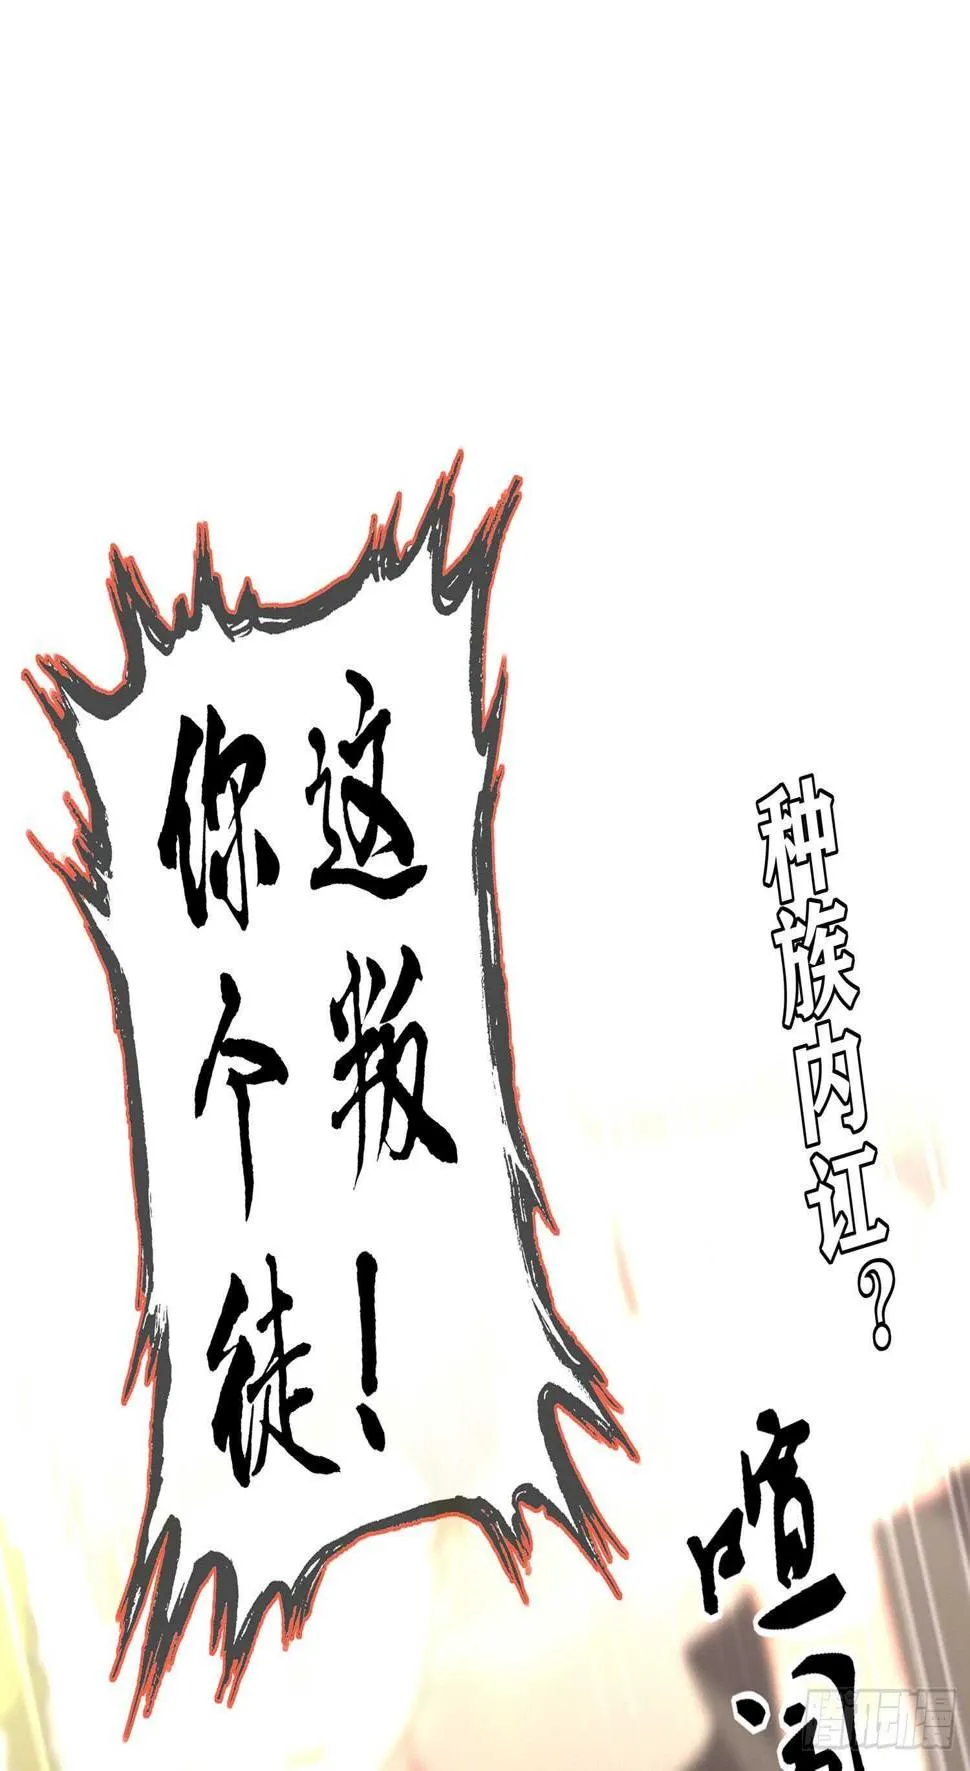 你这
个叛
徒！
种族内讧？
喧闹
腾讯动漫